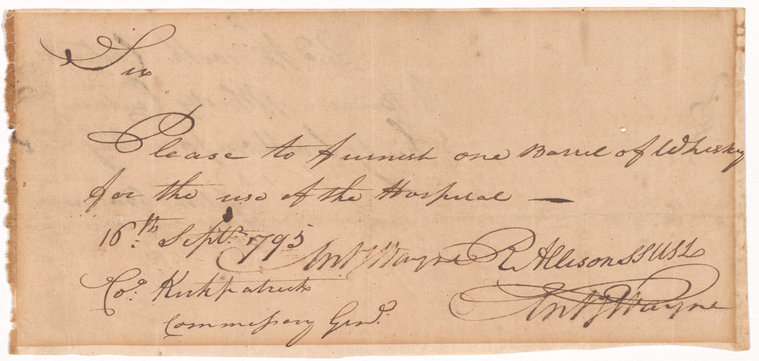 Sir
Please to furnish one Barrel of Whiskey
for the use of the Hospital —
16th Septr. 1795
Anty Wayne R Allison SSUSL
Co. Kirkpatrick Anty Wayne
Commissary Genl.